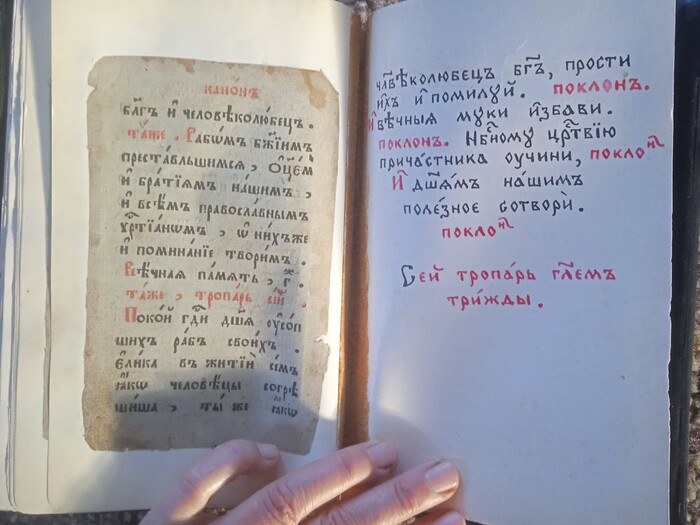 канѡ́нъ
бл҃гъ и҆ человѣколю́бецъ .
та́же . Рабѡ́мъ бж҃їимъ
преста́вльшимсѧ , ѻ҆ц҃е́мъ
и҆ бра́тїѧмъ на́шимъ ,
и҆ всѣ́мъ правосла́внымъ
хр҃тїа́нѡмъ , ѡ҆ ни́хъже
и҆ помина́нїе твори́мъ .
Вѣ́чная па́мѧть , г҃ .
та́же , тропа́рь се́й .
Поко́й гд҇и дш҃ѧ ᲂу҆со́п
шихъ ра́бъ свои́хъ .
є҆ли́ка въ житїи̂ се́мъ
ꙗ҆́кѡ человѣ́цы согрѣ
ши́ша , ты́ же ꙗ҆́кѡ
чл҃вѣколюбецъ бг҃ъ, прости
и҆́хъ и҆ помилуй . поклонъ.
И вѣчныѧ му́ки и҆зба́ви.
поклонъ. Нбⷭ҇ному црⷭ҇твїю
прича́стника ᲂучини, поклоⷩ
И҆ дш҃ѧ́мъ на́шимъ
поле́зное сотвори̂.
поклоⷩ
Сей тропа́рь гл҃емъ
три́жды .